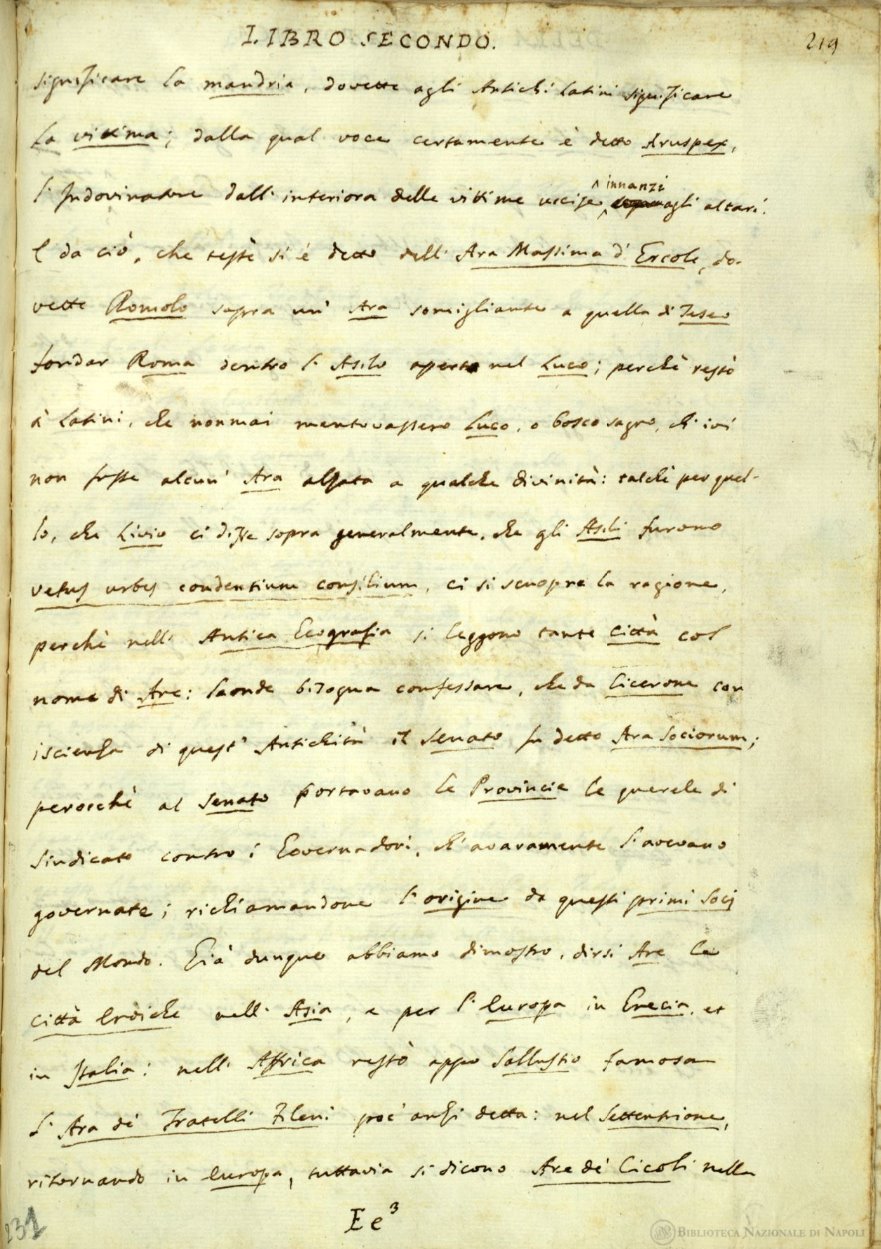 LIBRO SECONDO. 219
significare la mandria, dovette agli Antichi Latini significare
la vittima; dalla qual voce certamente è detto Aruspex,
l'Indovinatore dall'interiora delle vittime uccise innanzi agli altari.
E da ciò, che testè si è detto dell'Ara Massima d'Ercole, do-
vette Romolo sopra un'Ara somigliante a quella di Teseo
fondar Roma dentro l'Asilo aperto nel Luco; perchè restò
a' Latini, che nonmai mentovassero Luco, o bosco sagro, ch'ivi
non fusse alcun'Ara alzata a qualche divinità: talchè per quel-
lo, che Livio ci disse sopra generalmente, che gli Asili furono
vetus urbes condentium consilium, ci si scuopre la ragione,
perchè nell'Antica Geografia si leggono tante città col
nome di Are: laonde bisogna confessare, che da Cicerone con
iscienza di quest'Antichità il Senato fu detto Ara Sociorum;
perocchè al Senato portavano le Provincie le querele di
Sindicato contro i Governadori, ch'avaramente l'avevano
governate; richiamandone l'origine da questi primi Socj
del Mondo. Già dunque abbiamo dimostro, dirsi Are le
città Eroiche nell'Asia, e per l'Europa in Grecia, et
in Italia: nell'Affrica restò appo Sallustio famosa
l'Ara de' Fratelli Fileni poc'anzi detta: nel Settentrione,
ritornando in Europa, tuttavia si dicono Are de' Cicoli nella
Ee3
231
BIBLIOTECA NAZIONALE DI NAPOLI